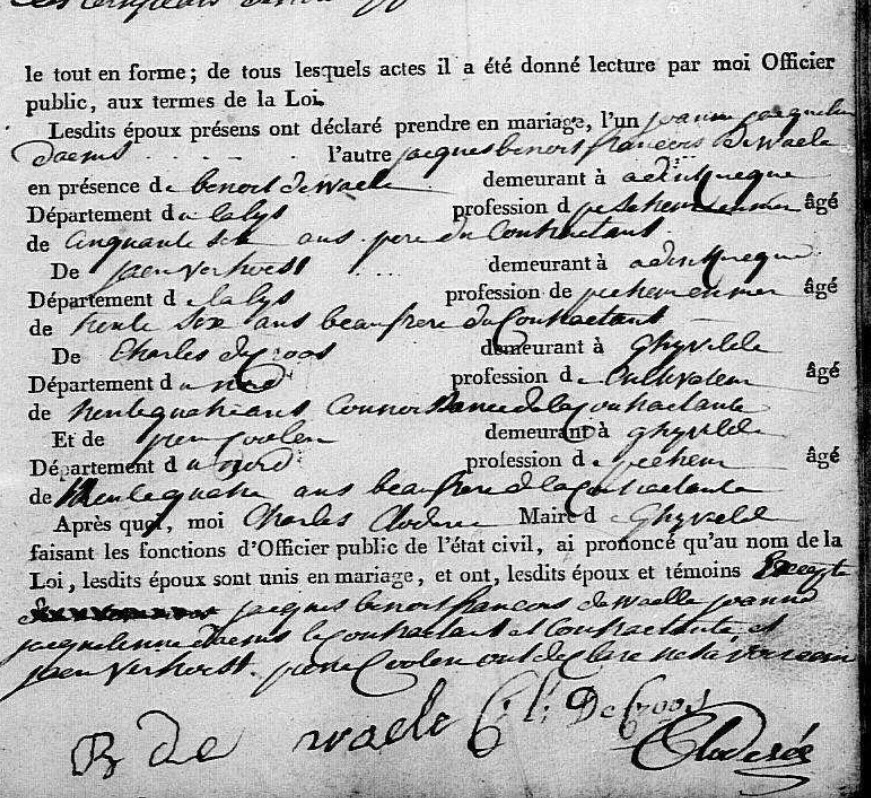 le tout en forme; de tous lesquels actes il a été donné lecture par moi Officier
public, aux termes de la Loi.
Lesdits époux présens ont déclaré prendre en mariage, l'un joanne jacqueline
Daems . . . . . l'autre jacques benoit francois De Waele
en présence de benoit de waele demeurant à adinkerque
Département de la lys profession de pecheur en mer âgé
de cinquante six ans pere du Contractant
De jaen verhoest . . . . demeurant à adinkerque
Département de la lys profession de pecheur en mer âgé
de trente six ans beau frere du Contractant
De Charles de Croos demeurant à ghyvelde
Département du nord profession de Cultivateur âgé
de trente quatre ans Connoissance de la Contractante
Et de pierre Coolen demeurant à ghyvelde
Département du nord profession de pecheur âgé
de trente quatre ans beau frere de la Contractante
Après quoi, moi Charles Cloderée Maire de Ghyvelde
faisant les fonctions d'Officier public de l'état civil, ai prononcé qu'au nom de la
Loi, lesdits époux sont unis en mariage, et ont, lesdits époux et témoins Excepte
jacques benoit francois de waelle joanne
jacquelinne Daems le Contractant et Contractante et
jaen Verhoest. pierre Coolen ont declare ne savoir
B de waele C: l: De Croos
Cloderée